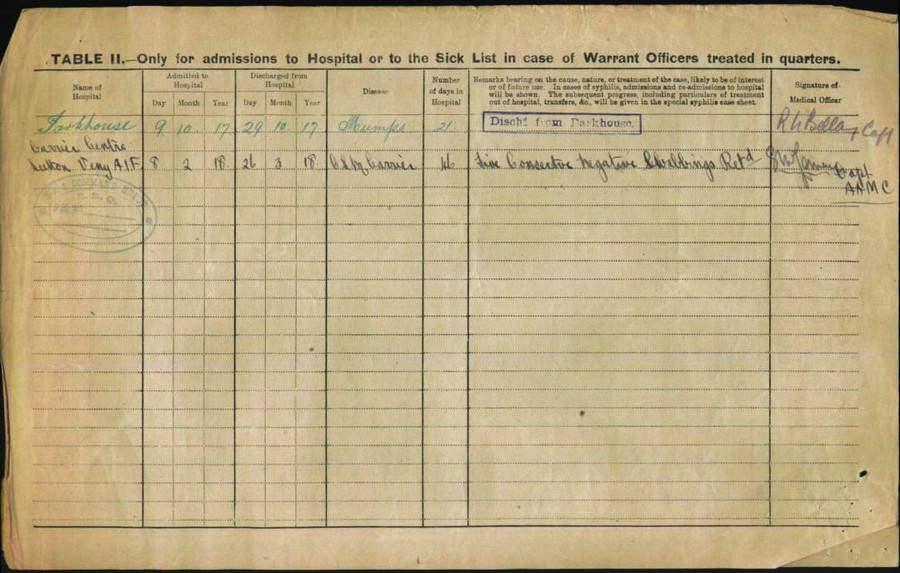 TABLE II.—Only for admissions to Hospital or to the Sick List in case of Warrant Officers treated in quarters.
Name of Hospital
Admitted to Hospital
Day Month Year
Discharged from Hospital
Day Month Year
Disease
Number of days in Hospital
Remarks bearing on the cause, nature, or treatment of the case, likely to be of interest
or of future use. In cases of syphilis, admissions and re-admissions to hospital
will be shown. The subsequent progress, including particulars of treatment
out of hospital, transfers, &c., will be given in the special syphilis case sheet.
Signature of Medical Officer
Parkhouse 9 10 17 29 10 17 Mumps 21 Dischd from Parkhouse. Capt
Carrier Centre
Sutton Veny A.I.F. 8 2 18 26 3 18 C.S.M. Carrier 46 Five Consective Negative Swabbings Retd
Capt
AAMC